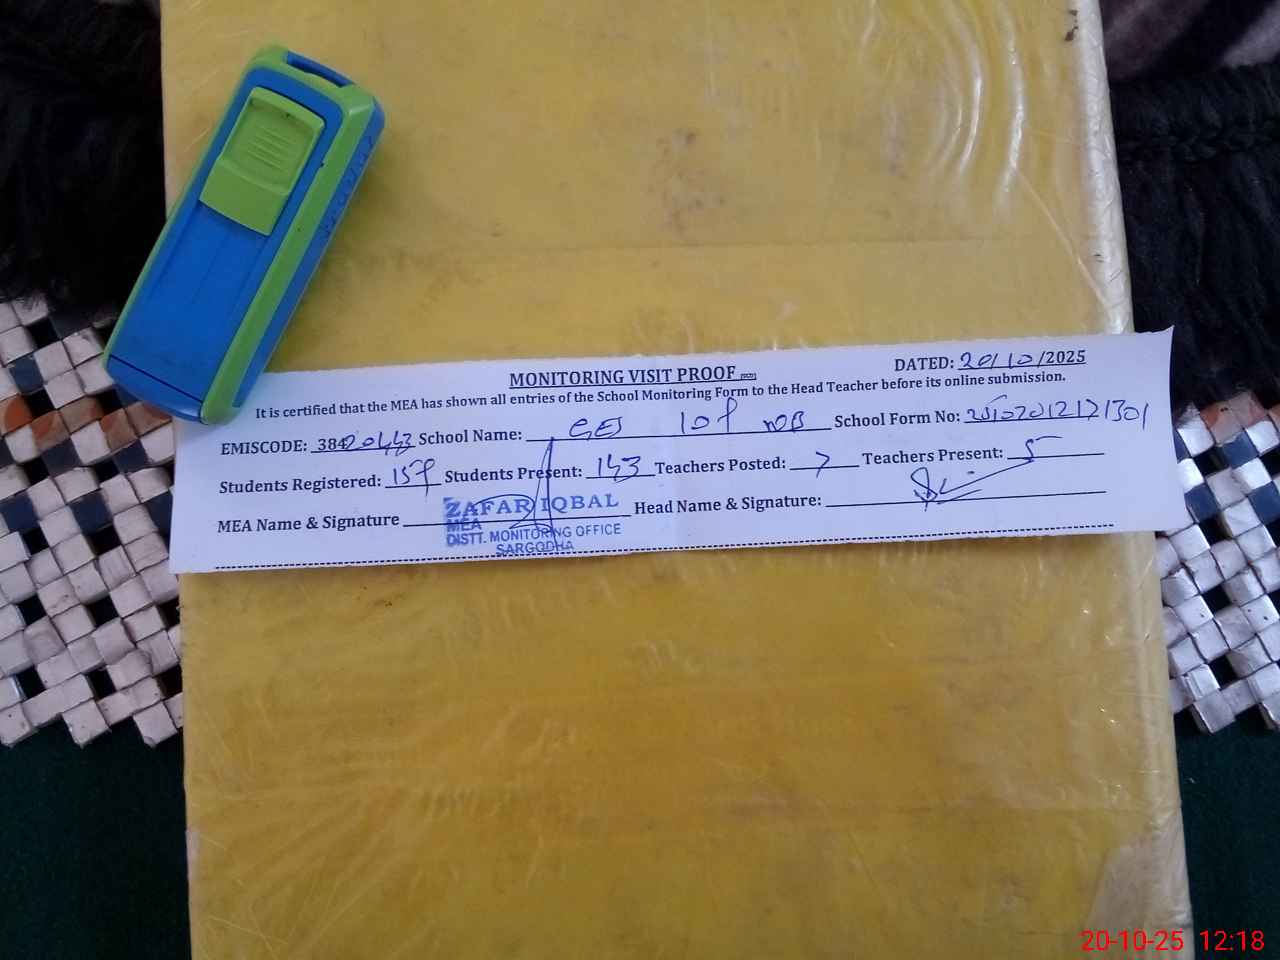 MONITORING VISIT PROOF
DATED: 20/10/2025
It is certified that the MEA has shown all entries of the School Monitoring Form to the Head Teacher before its online submission.
EMISCODE: 38420443 School Name: GES 109 NB School Form No:
Students Registered: 159 Students Present: 143 Teachers Posted: 7 Teachers Present: 5
MEA Name & Signature ZAFAR IQBAL Head Name & Signature:
MEA
DISTT. MONITORING OFFICE
SARGODHA
20-10-25 12:18